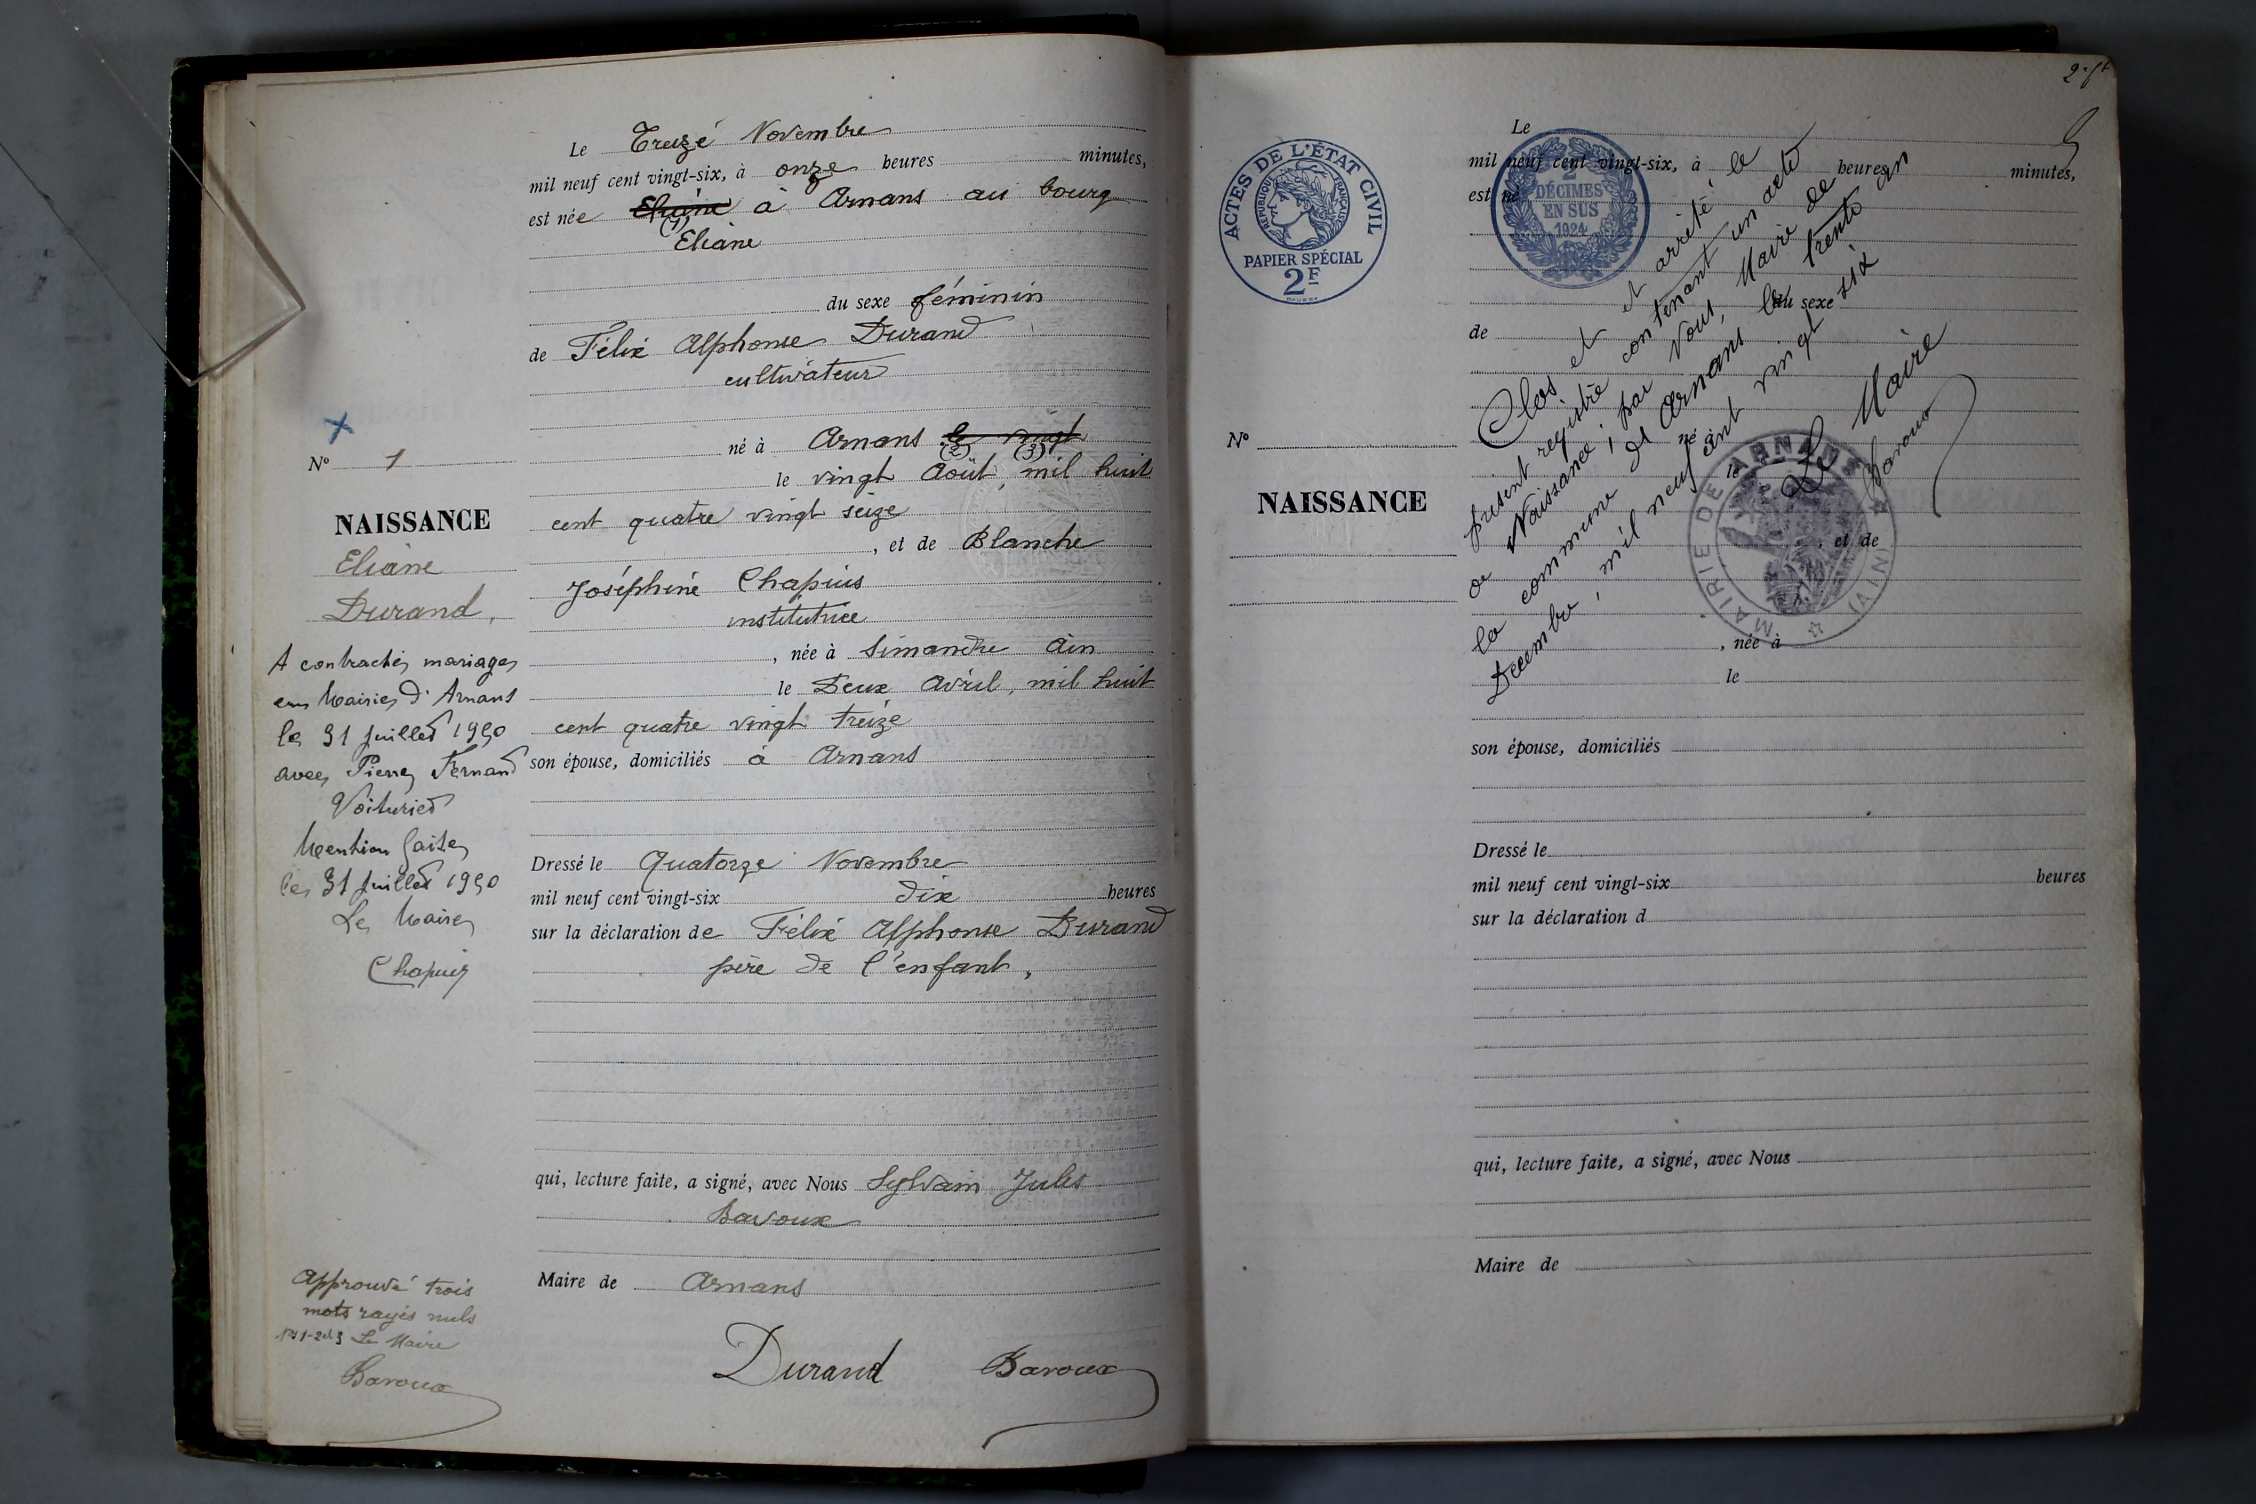 Le Treize Novembre
mil neuf cent vingt-six, à onze heures minutes,
est née Eliane à Arnans au bourg
(1) Eliane
du sexe féminin
de Félix Alphonse Durand
cultivateur
né à Arnans le vingt
(2) (3)
le vingt Août, mil huit
cent quatre vingt seize
, et de Blanche
Joséphine Chapuis
institutrice
, née à Simandre Ain
le Deux Avril, mil huit
cent quatre vingt treize
son épouse, domiciliés à Arnans
Dressé le Quatorze Novembre
mil neuf cent vingt-six dix heures
sur la déclaration de Félix Alphonse Durand
père de l'enfant,
qui, lecture faite, a signé, avec Nous Sylvain Jules
Bavoux
Maire de Arnans
Durand Bavoux
No 1
NAISSANCE
Eliane
Durand,
A contracté mariage
en Mairie d'Arnans
le 31 Juillet 1950
avec Pierre Fernand
Voiturier
Mention faite
le 31 Juillet 1950
Le Maire
Chapuis
Approuvé trois
mots rayés nuls
Nos 1-2 et 3 Le Maire
Bavoux
ACTES DE L'ÉTAT CIVIL
RÉPUBLIQUE FRANÇAISE
PAPIER SPÉCIAL
2F
No
NAISSANCE
Le
mil neuf cent vingt-six, à heures minutes,
est né
2
DÉCIMES
EN SUS
1924
du sexe
de
né à
le
, et de
, née à
le
son épouse, domiciliés
Dressé le
mil neuf cent vingt-six heures
sur la déclaration d
qui, lecture faite, a signé, avec Nous
Maire de
Clos et et arrêté le
présent registre contenant un acte
de Naissance, par Nous, Maire de
la commune de Arnans le trente un
Décembre, mil neuf cent vingt six
Le Maire
Bavoux
MAIRIE DE ARNANS
(AIN)